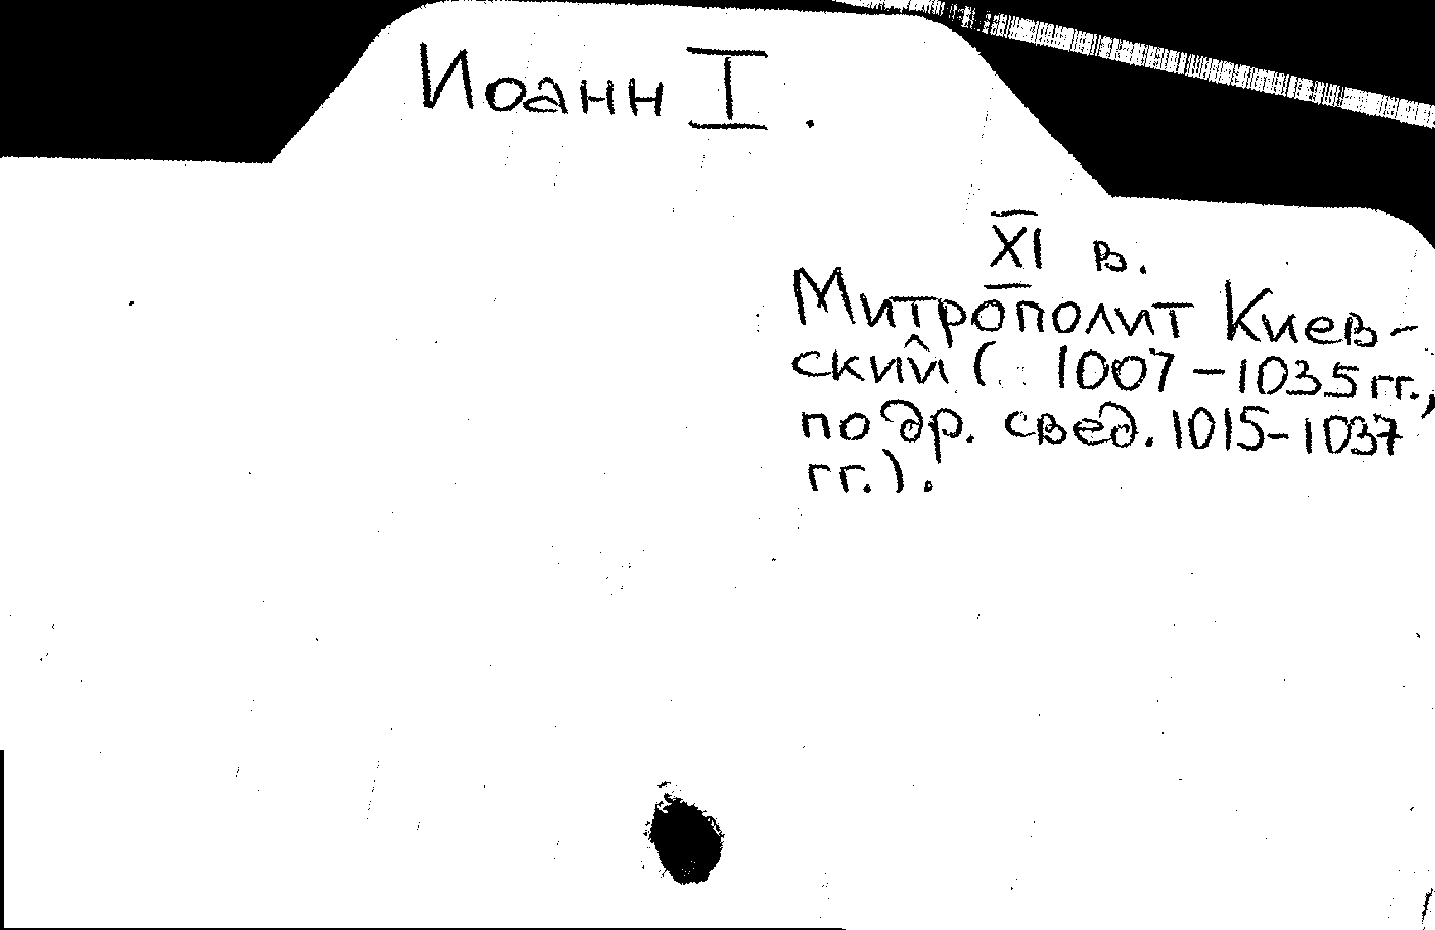 Иоанн I.
XI в.
Митрополит Киев-
ский ( 1007-1035 гг.,
по др. свед. 1015-1037
гг.).